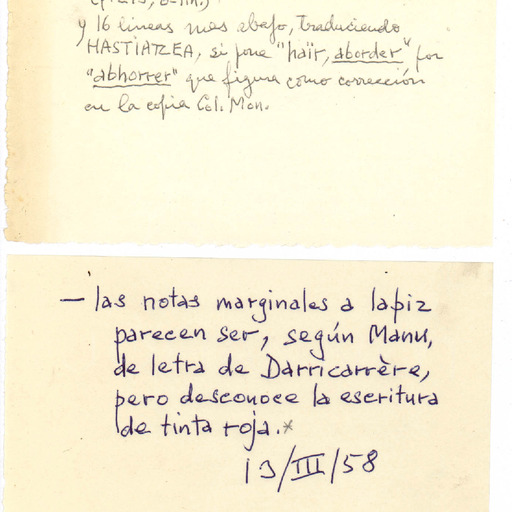 y 16 lineas mas abajo, traduciendo
HASTIATZEA, si pone "haïr, aborder" por
"abhorrer" que figura como corrección
en la copia Col. Mon.
— las notas marginales a lapiz
parecen ser, según Manu,
de letra de Darricarrère,
pero desconoce la escritura
de tinta roja.*
13/III/58